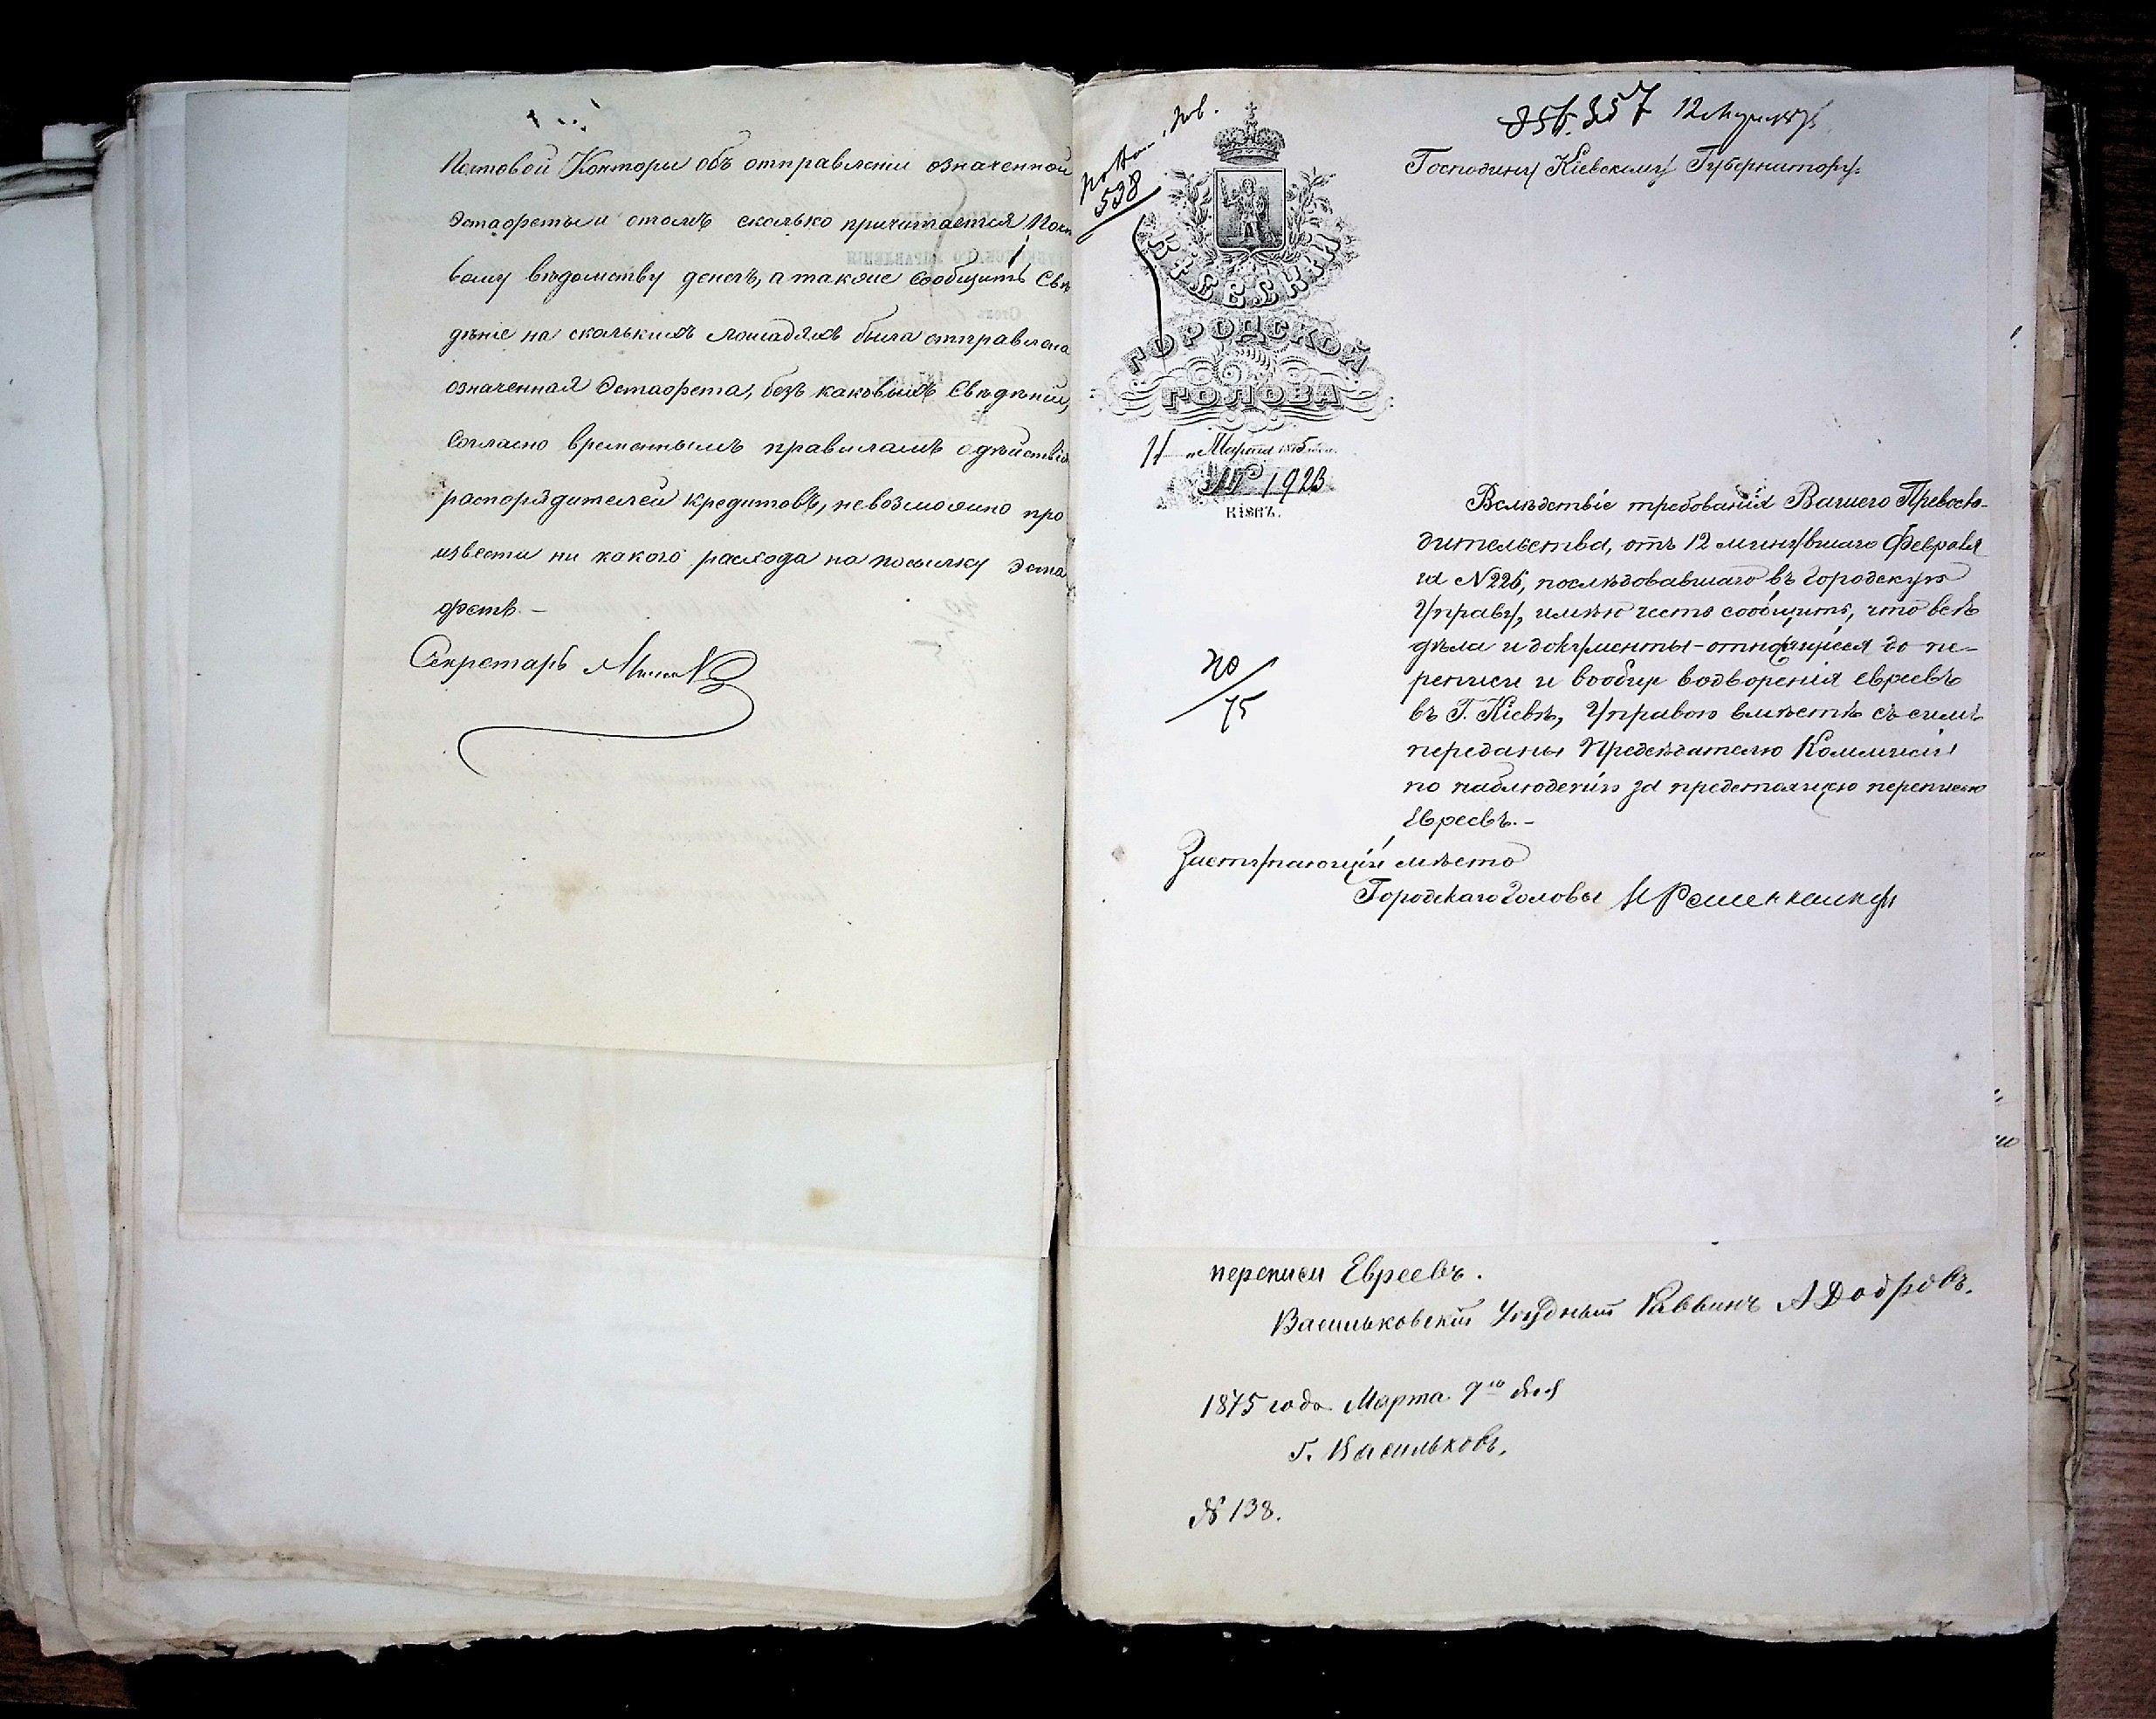 Почтовой Конторы объ отправленіи означенной
Эстафеты и отомъ сколько причитается Поч
вому вѣдомству денегъ, а также сообщить Свѣ
дѣніе на сколькихъ лошадяхъ была отправлена
означенная Эстафета, безъ каковыхъ Свѣдѣній,
Согласно временнымъ правиламъ о дѣйствія
распорядителей кредитовъ, невозможно про
извести ни какого расхода на посылку Эста
фетъ. —
Секретарь
538
356. 357 12 Марта 75
Господину Кіевскому Губернатору.
КІЕВСКІЙ
ГОРОДСКОЙ
ГОЛОВА
11 „Марта 1875
№ 1923
КІЕВЪ.
Вслѣдствіе требованія Вашего Превосхо-
дительства, отъ 12 минувшаго Февраля
за №226, послѣдовавшаго въ Городскую
Управу, имѣю честь сообщить, что всѣ
дѣла и документы – относящіеся до пе-
реписи и вообще водворенія евреевъ
въ Г. Кіевѣ, Управою вмѣстѣ съ симъ
переданы Предсѣдателю Коммисіи
по наблюденію за предстоящею переписью
Евреевъ. –
20
75
Заступающій мѣсто
Городскаго Головы
переписи Евреевъ.
Васильковскій Уѣздный Раввинъ А Добровъ.
1875 года Марта 9го дня
Г. Васильковъ.
№ 138.